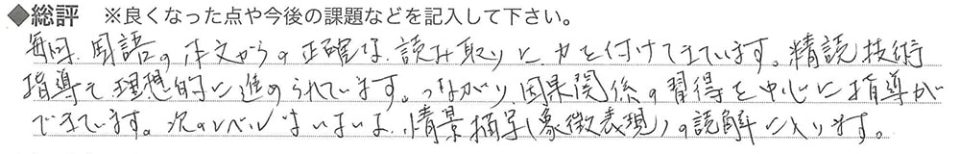 ◆総評 ※良くなった点や今後の課題などを記入して下さい。
毎回、国語の本文からの正確な読み取りに力を付けてきています。精読技術
指導も理想的に進められています。つながり、因果関係の習得を中心に指導が
できています。次のレベルはいよいよ、情景描写(象徴表現)の読解に入ります。